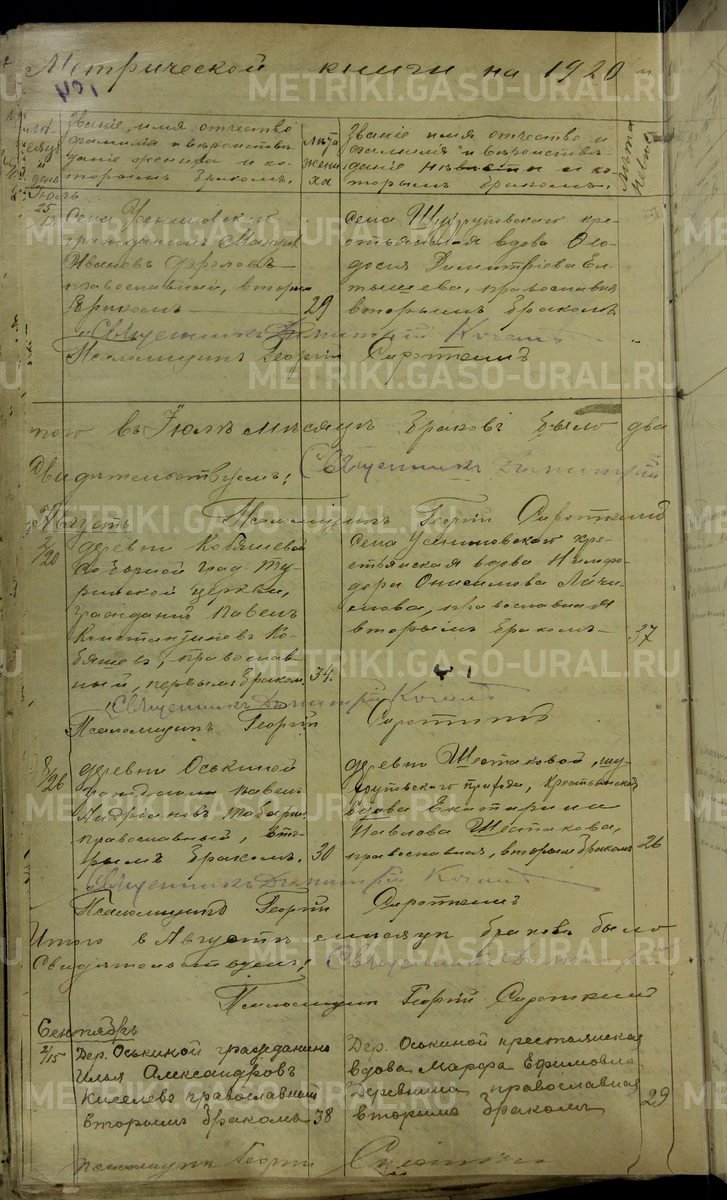 Метрической книги на 1920
Званіе, имя отчество
фамилія и вѣроисповѣ-
даніе жениха и ко-
торымъ бракомъ.
Лѣта
жени
ха
Званіе имя отчество и
фамилія и вѣроисповѣ-
даніе невѣсты и ко-
торымъ бракомъ.
Лѣта
невѣ
Іюль
25
села Усениновскаго
гражданинъ
Ивановъ Фроловъ
православный, вторым
бракомъ
29
села Шухруповскаго кре-
стьянская вдова Ѳео-
досія Димитріева Ел-
тышева, православная
вторымъ бракомъ
Священникъ Димитрій
Псаломщикъ Георгій Сироткинъ
Итого въ Іюлѣ мѣсяцѣ браковъ было два
Свидѣтельствуемъ: Священникъ Димитрій
Псаломщикъ Георгій Сироткинъ
Августъ
7/20
деревни Кобяшевой
Соборной град Ту-
ринской церкви,
гражданин Павелъ
Константиновъ Ко-
бяшевъ, православ-
ный, первымъ браком.
34.
села Усениновскаго кре-
стьянская вдова Нимфо-
дора Онисимова Лачи-
нова, православная
вторымъ бракомъ
37
Священникъ Димитрій
Псаломщикъ Георгій Сироткинъ
8/26
деревни Оськиной
гражданин Павелъ
Андріановъ Табари
православный, вто-
рымъ бракомъ.
30
деревни Шестаковой, шу-
хруповскаго прихода, крестьянская
вдова Екатерина
Павлова Шестакова,
православная, вторымъ бракомъ
26
Священникъ Димитрій
Псаломщикъ Георгій Сироткинъ
Итого в Августѣ мѣсяцѣ браковъ было
Свидѣтельствуемъ: Священникъ Димитрій
Псаломщикъ Георгій Сироткинъ
Сентябрь
2/15
Дер. Оськиной гражданинъ
Илья Александровъ
Киселевъ православный
вторымъ бракомъ
38
Дер. Оськиной крестьянская
вдова Марѳа Ефимовна
Деревнина православная
вторымъ бракомъ
29
псаломщикъ Георгій Сироткинъ
METRIKI.GASO-URAL.RU